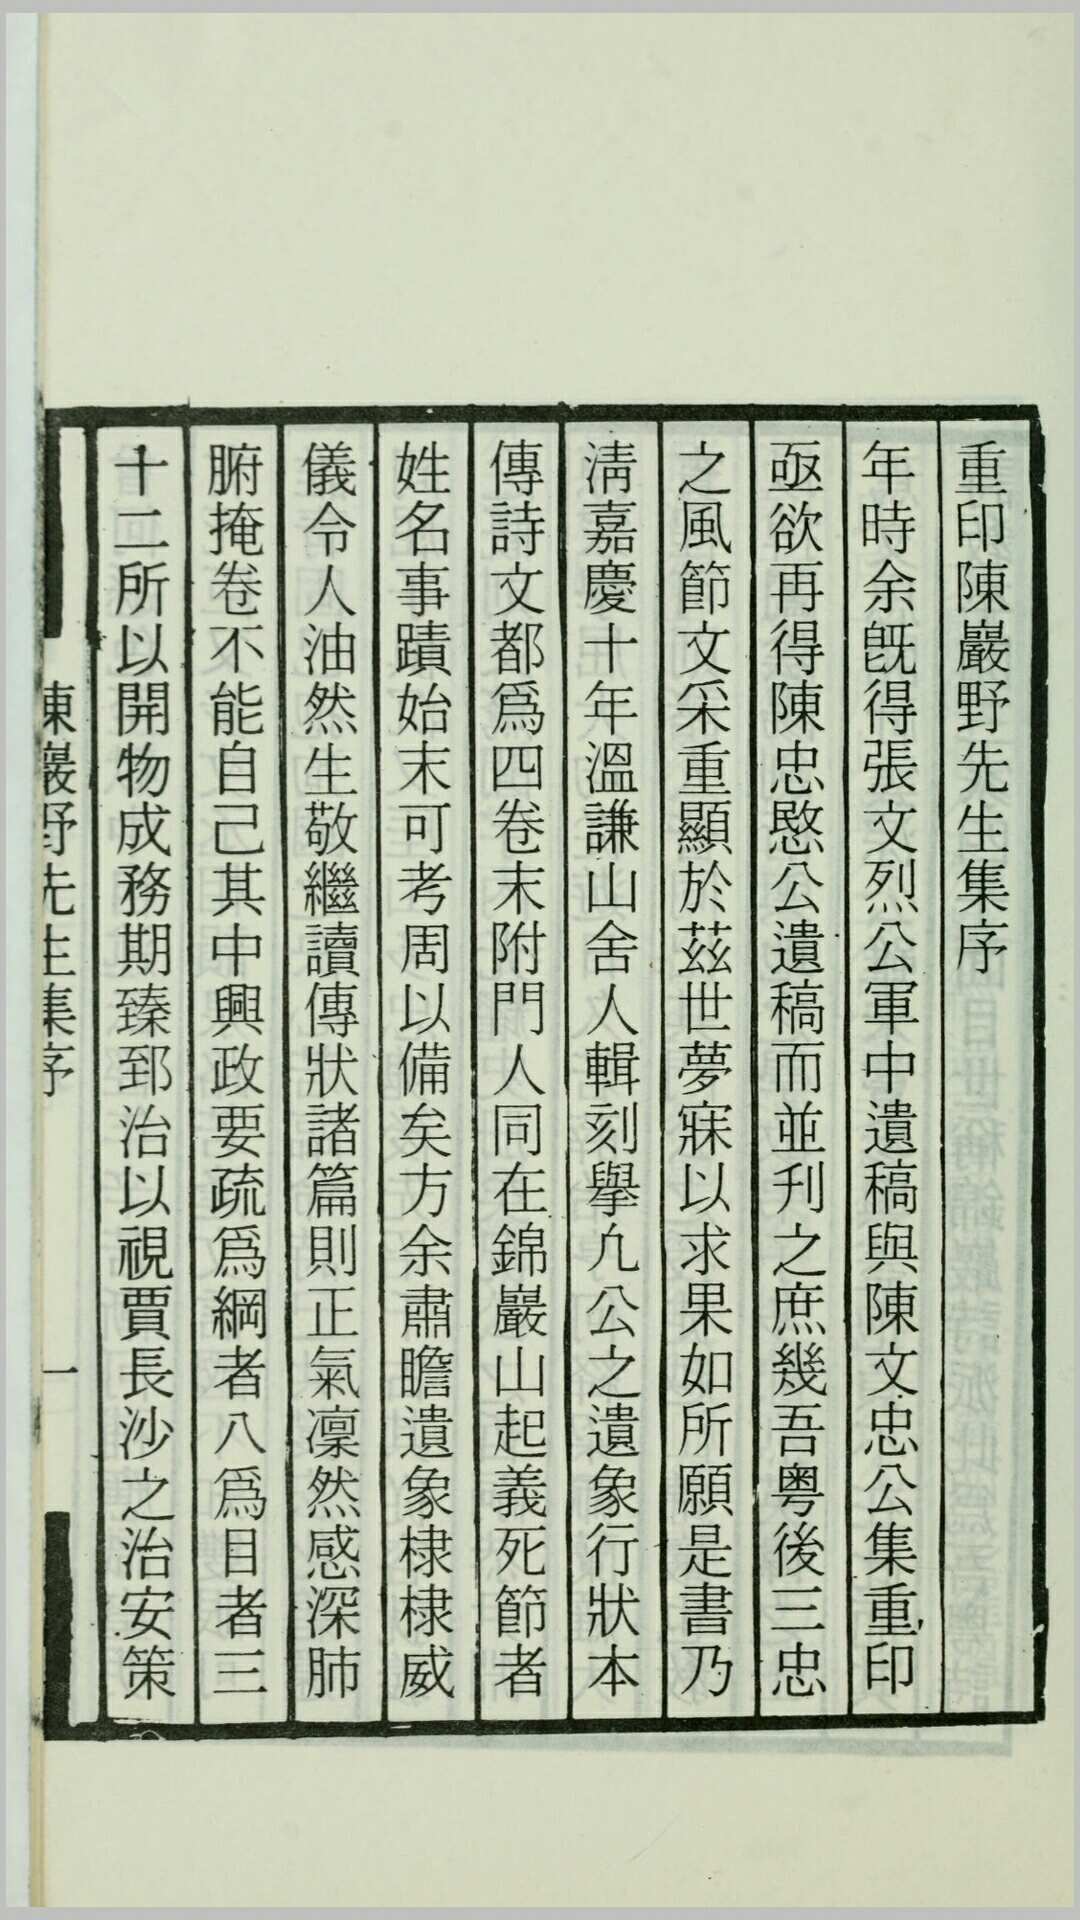 重印陳巖野先生集序
年時余旣得張文烈公軍中遺稿與陳文忠公集重印
亟欲再得陳忠愍公遺稿而並刋之庶幾吾粤後三忠
之風節文采重顯於茲世夢寐以求果如所願是書乃
淸嘉慶十年溫謙山舍人輯刻擧凣公之遺象行狀本
傳詩文都爲四卷末附門人同在錦巖山起義死節者
姓名事蹟始末可考周以備矣方余肅瞻遺象棣棣威
儀令人油然生敬繼讀傳狀諸篇則正氣凜然感深肺
腑掩卷不能自己其中興政要疏爲綱者八爲目者三
十二所以開物成務期臻郅治以視賈長沙之治安策
陳巖野先生集序
一